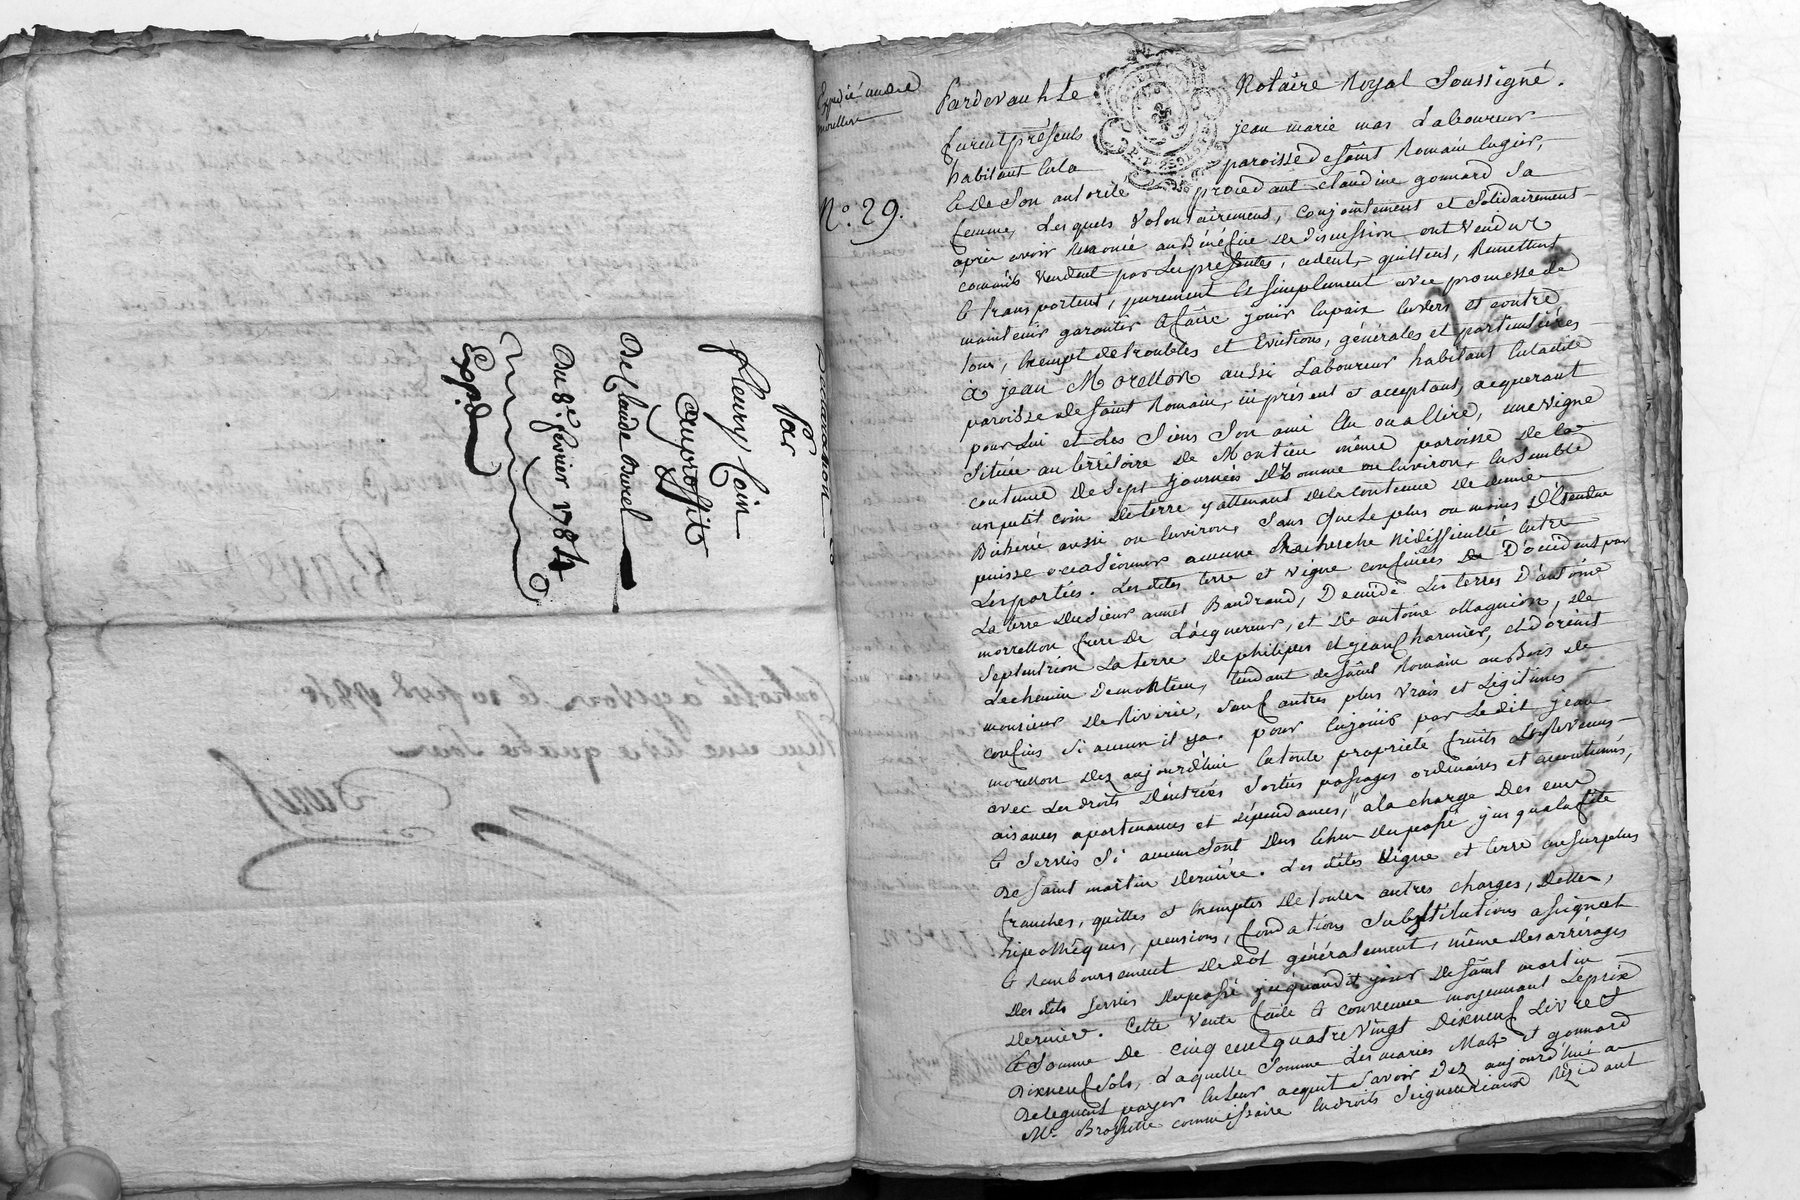 Declaration
Par
fleury Coin
Au proffit
De Claude Burel
Du 8e. fevrier 1784
Expd.
Controllé a Givors le 10 fevr 1784
Reçu une livre quatre sous
Expedié audit
morellon
No. 29.
Pardevant Le Notaire Royal Soussigné.
furent présents jean marie mas Laboureur
habitant en la paroisse de Saint Romain en gier,
& De Son autorité procedant claudine gonnard Sa
femme, Lesquels volontairement, conjointement et Solidairement
après avoir Renoncé au Bénéfice De discussion ont vendu
comme vendent par Les présentes, cedent, quittent, Remettent
& transportent, purement & simplement avec promesse de
maintenir garantir & faire jouir en paix envers et contre
tous, exempt de troubles et Evictions, générales et particulières
à jean Morellon aussi Laboureur habitant en la dite
paroisse de Saint Romain, ici présent et acceptant, acquerant
pour Lui et Les Siens Son ami Elu ou a Elire, une vigne
Située au territoire De Montieu même paroisse De la
contenue De Sept journées D'homme ou environ, ensemble
un petit coin De terre y attenant De la contenue De demie
Bicherée aussi ou environ, Sans que Le plus ou moins D'étendue
puisse occasionner aucune Recherche ni difficulté entre
Les parties. Les dites terre et vigne confinées De D'occident par
La terre Du Sieur annet Bandrand, De midi Les terres D'antoine
morellon frere De L'acquereur, et De antoine Magnien, De
Septentrion La terre De philipes et jean Charmier, et D'orient
Le chemin De montieu, tendant de Saint Romain au Bois de
monsieur De Riverie, Sauf autres plus vrais et Legitimes
confins Si aucun il y a. pour en jouir par Le dit jean
morellon Dez aujourd'hui en toute propriété fruits et Revenus
avec Les droits D'entrées Sorties passages ordinaires et accoutumés,
aisances apartenances et dépendances, à la charge Des cens
& Servis Si aucun Sont Dus & ceux Du passé jusqu'a la fête
De Saint martin Derniere. Les dites vigne et terre au Surplus
franches, quittes & exemptes De toutes autres charges, Dettes,
hipothèques, pensions, fondations Substitutions assignat
& Remboursement De dot généralement, même Des arrérages
Des dits Servis Du passé jusqu'audit jour De Saint martin
Dernier. Cette vente faite & convenue moyennant Le prix
& Somme De cinq cent quatre vingt Dixneuf Livres
Dixneuf Sols, Laquelle Somme Les mariés Mas et gonnard
Deleguent payer en Leur acquit Savoir Dez aujourd'hui a
Mr. Brossette commissaire en droits Seigneuriaux Résidant